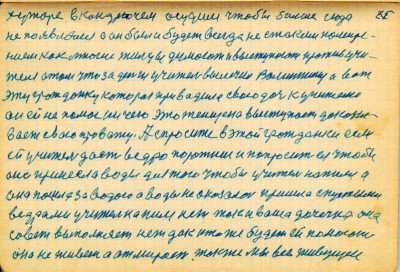 хуторе в кондрючем осудили чтобы больше сюда
35
не появился а он был и будет всегда не с таким намере-
нием как многие живущие
теля о том что за доктор учитель вылечил Валентину а вот
эту гражданку которая приводила свою доч к учителю
он ей не помог ничего это женщина выступает доказы-
вает свою правоту. А спросите в этой гражданки если
ей учитель дает ведро порожнее и попросит ей чтобы
она принесла воды для того чтобы учитель напился а
она пошла за водою а воды не оказалось пришла с пустыми
ведрами учитель напился нет тоже и ваша дочечка она
совет выполняет нет дак кто же будет ей помогать
она не живет а отмирает. также мы все живущие